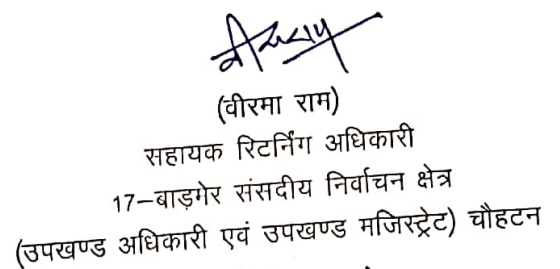 (वीरमा राम)
सहायक रिटर्निंग अधिकारी
17–बाड़मेर संसदीय निर्वाचन क्षेत्र
(उपखण्ड अधिकारी एवं उपखण्ड मजिस्ट्रेट) चौहटन